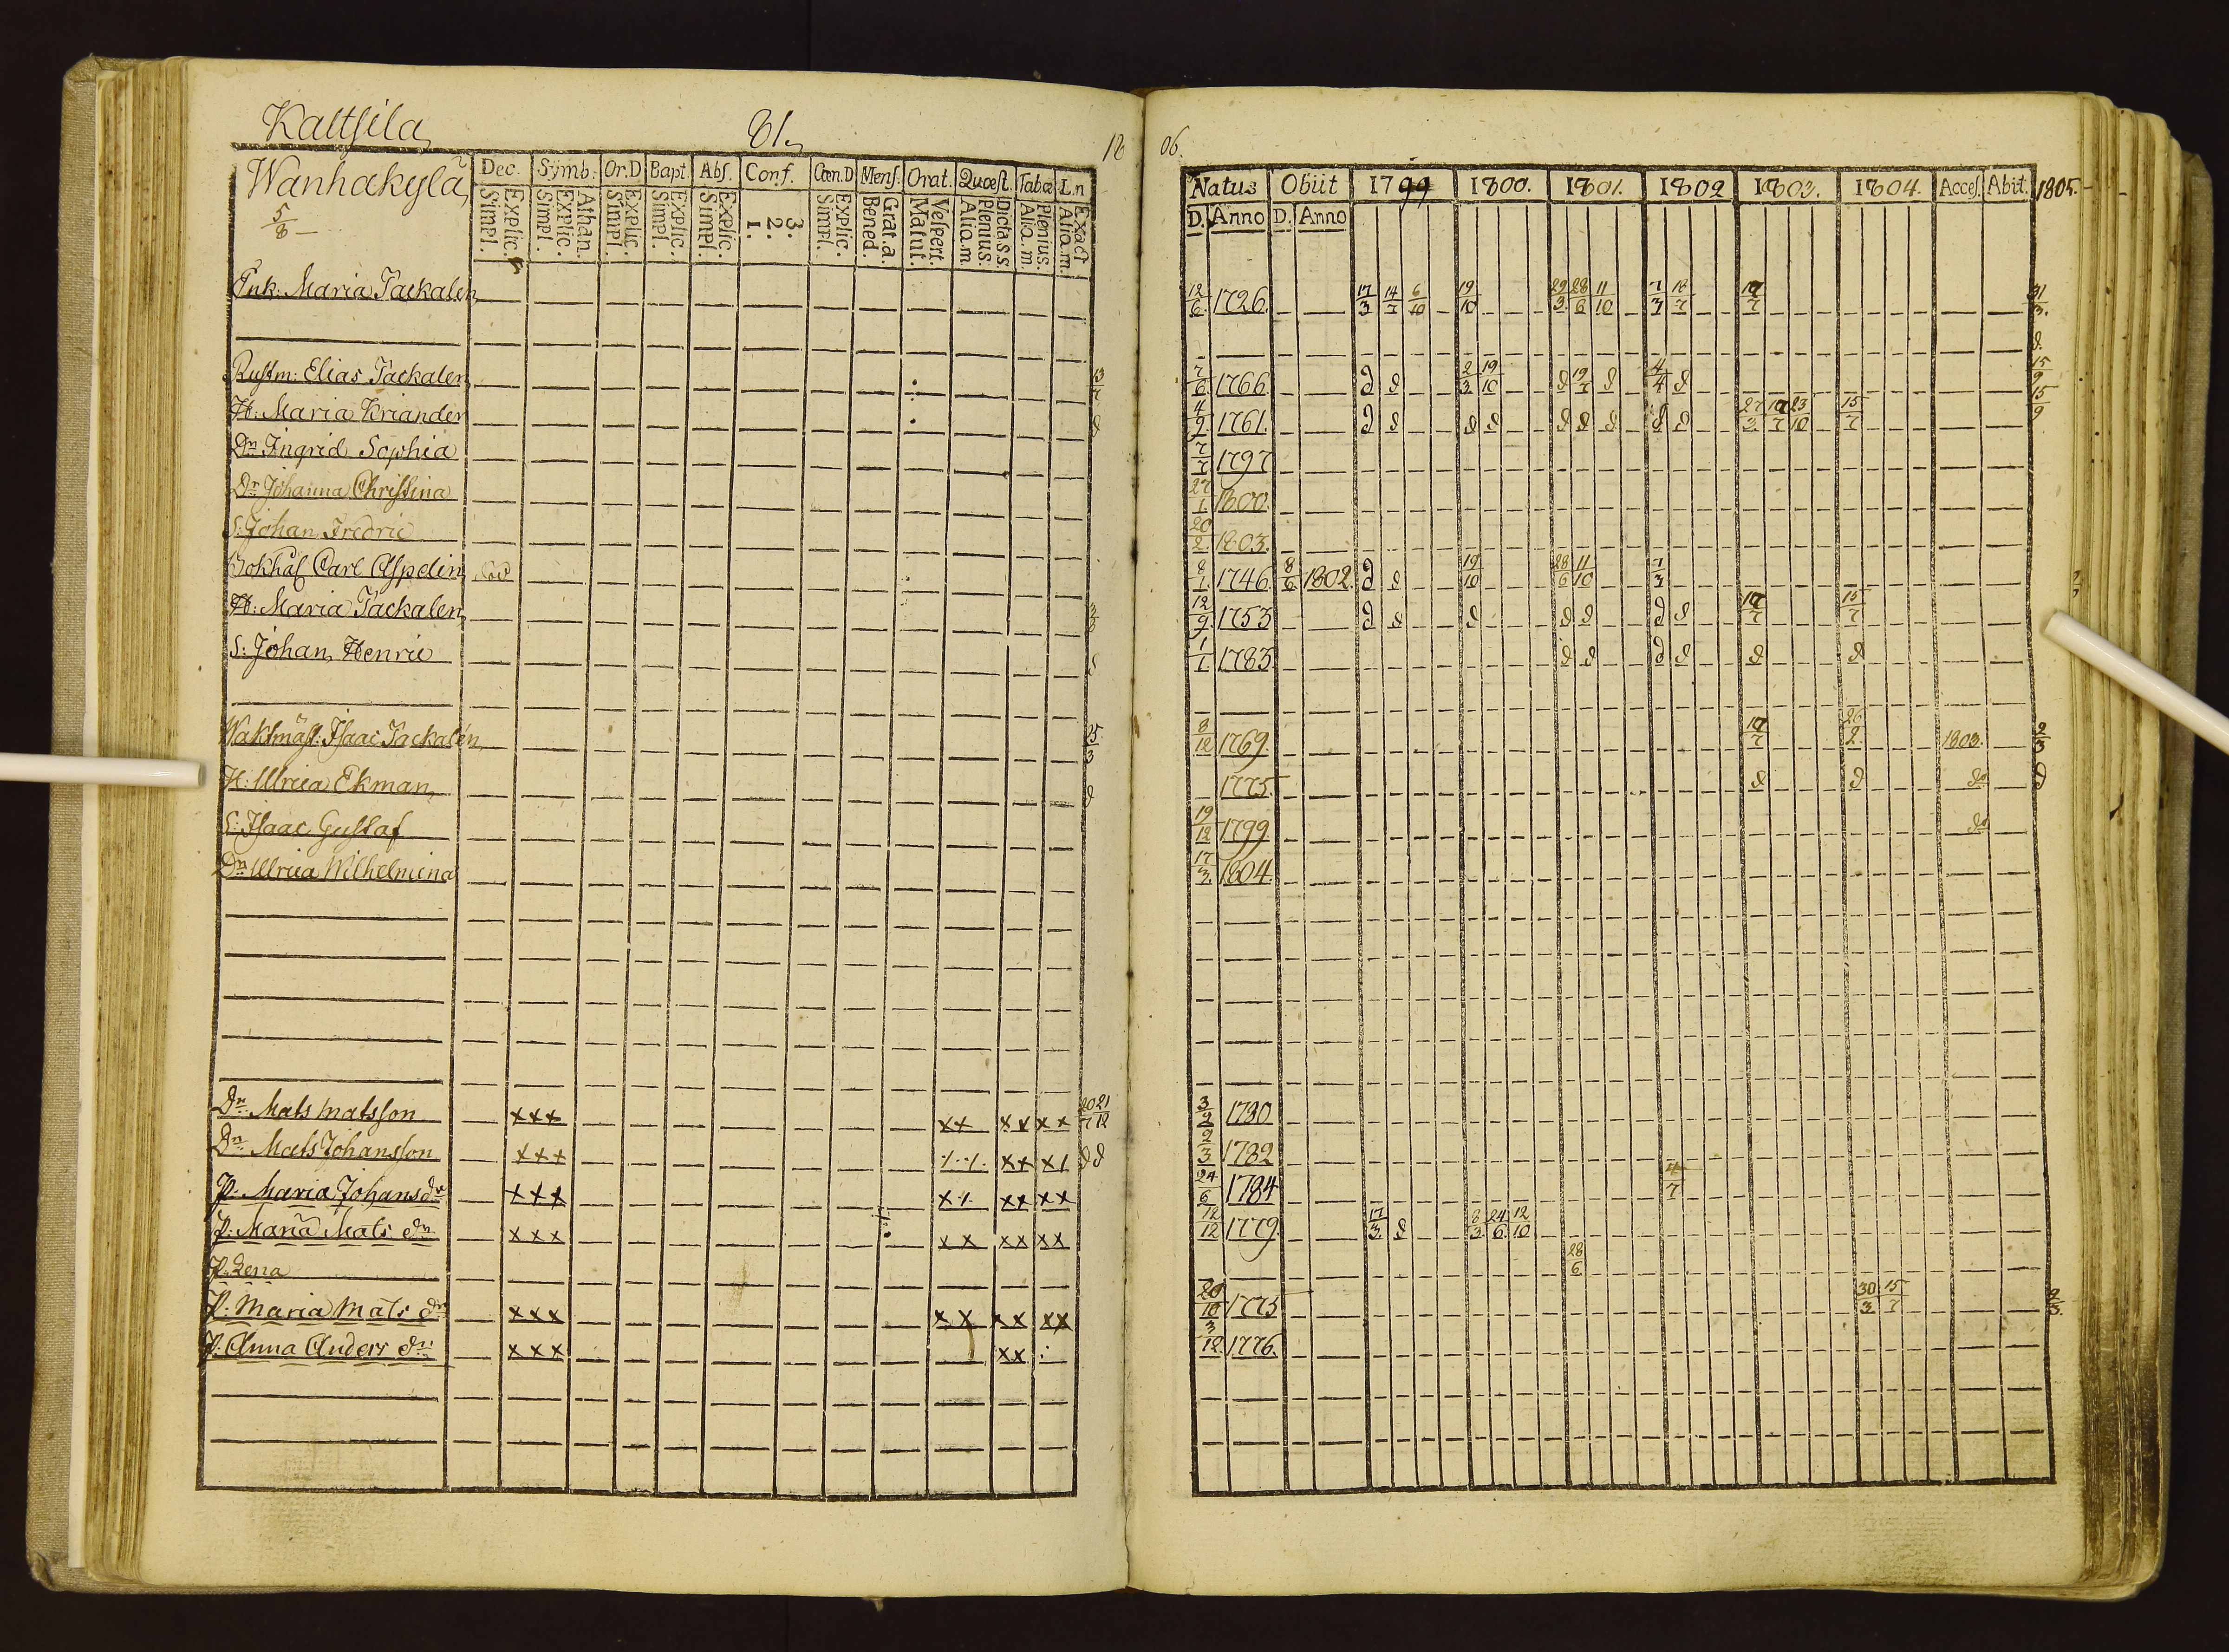 Kaltsila
81.
18
06.
Wanhakylä
5/8
Dec. Symb: Or.D Bapt Abs. Conf. Cæn.D Mens. Orat. Quæst. Tabæ L.n
Simpl. Explic. Simpl. Explic. Athan. Simpl. Explic. Simpl. Explic. Simpl. Explic. 1. 2. 3. Simpl. Explic. Bened. Grat.a. Matut. Vespert. Alia.m. Plenius. Dicta.s.s. Alia.m. Plenius. Alia.m. Exact
Natus Obiit 1799 1800. 1801. 1802 1803. 1804. Acces. Abit. 1805.
D. Anno D. Anno
Enk. Maria Packalen 12/6 1726. 17/3 14/7 6/10 19/10 29/3 28/6 11/10 7/3 18/7 10/7 31/3.
Rustm: Elias Packalen 13/7 7/6 1766. d d 2/3 19/10 d 19/7 d 4/4 d 15/9
H: Maria Kriander d 4/9 1761. d d d d d d d d d 27/3 10/7 23/10 15/7 15/9
Dr Ingrid Sophia 7/7 1797
Dr Johanna Christina 27/1 1800.
S: Johan Fredric 20/2 1803.
Bokhål Carl Aspelin 8/1 1746. 8/6 1802. d d 19/10 28/6 11/10 7/3
H: Maria Packalen 12/9 1753 d d d d d d d 10/7 15/7
S: Johan Henric d 1/1 1783 d d d d d d
Waktmäst: Isaac Packalen 25/3 8/12 1769. 10/7 26/2 1803. 2/3
H: Ulrica Ekman d 1775. d d do d
S: Isaac Gustaf 19/12 1799 do
Dr Ulrica Wilhelmina 17/3 1804.
Dn Mats Matsson xxx xx xx xx 20/7 21/12 3/2 1780
Dn Mats Johansson xxx xx x/ d d 2/3 1782
P. Maria Johansdr xxx x/ xx xx 24/6 1784 4/7
P: Maria Mats dr xxx xx xx xx 12/12 1779. 17/3 d 8/3 24/6 12/10
P. Lena 28/6
P: Maria Mats dr xxx xx xx xx 20/10 1775 30/3 15/7 2/3.
P. Anna Anders dr xxx xx 3/12 1776.